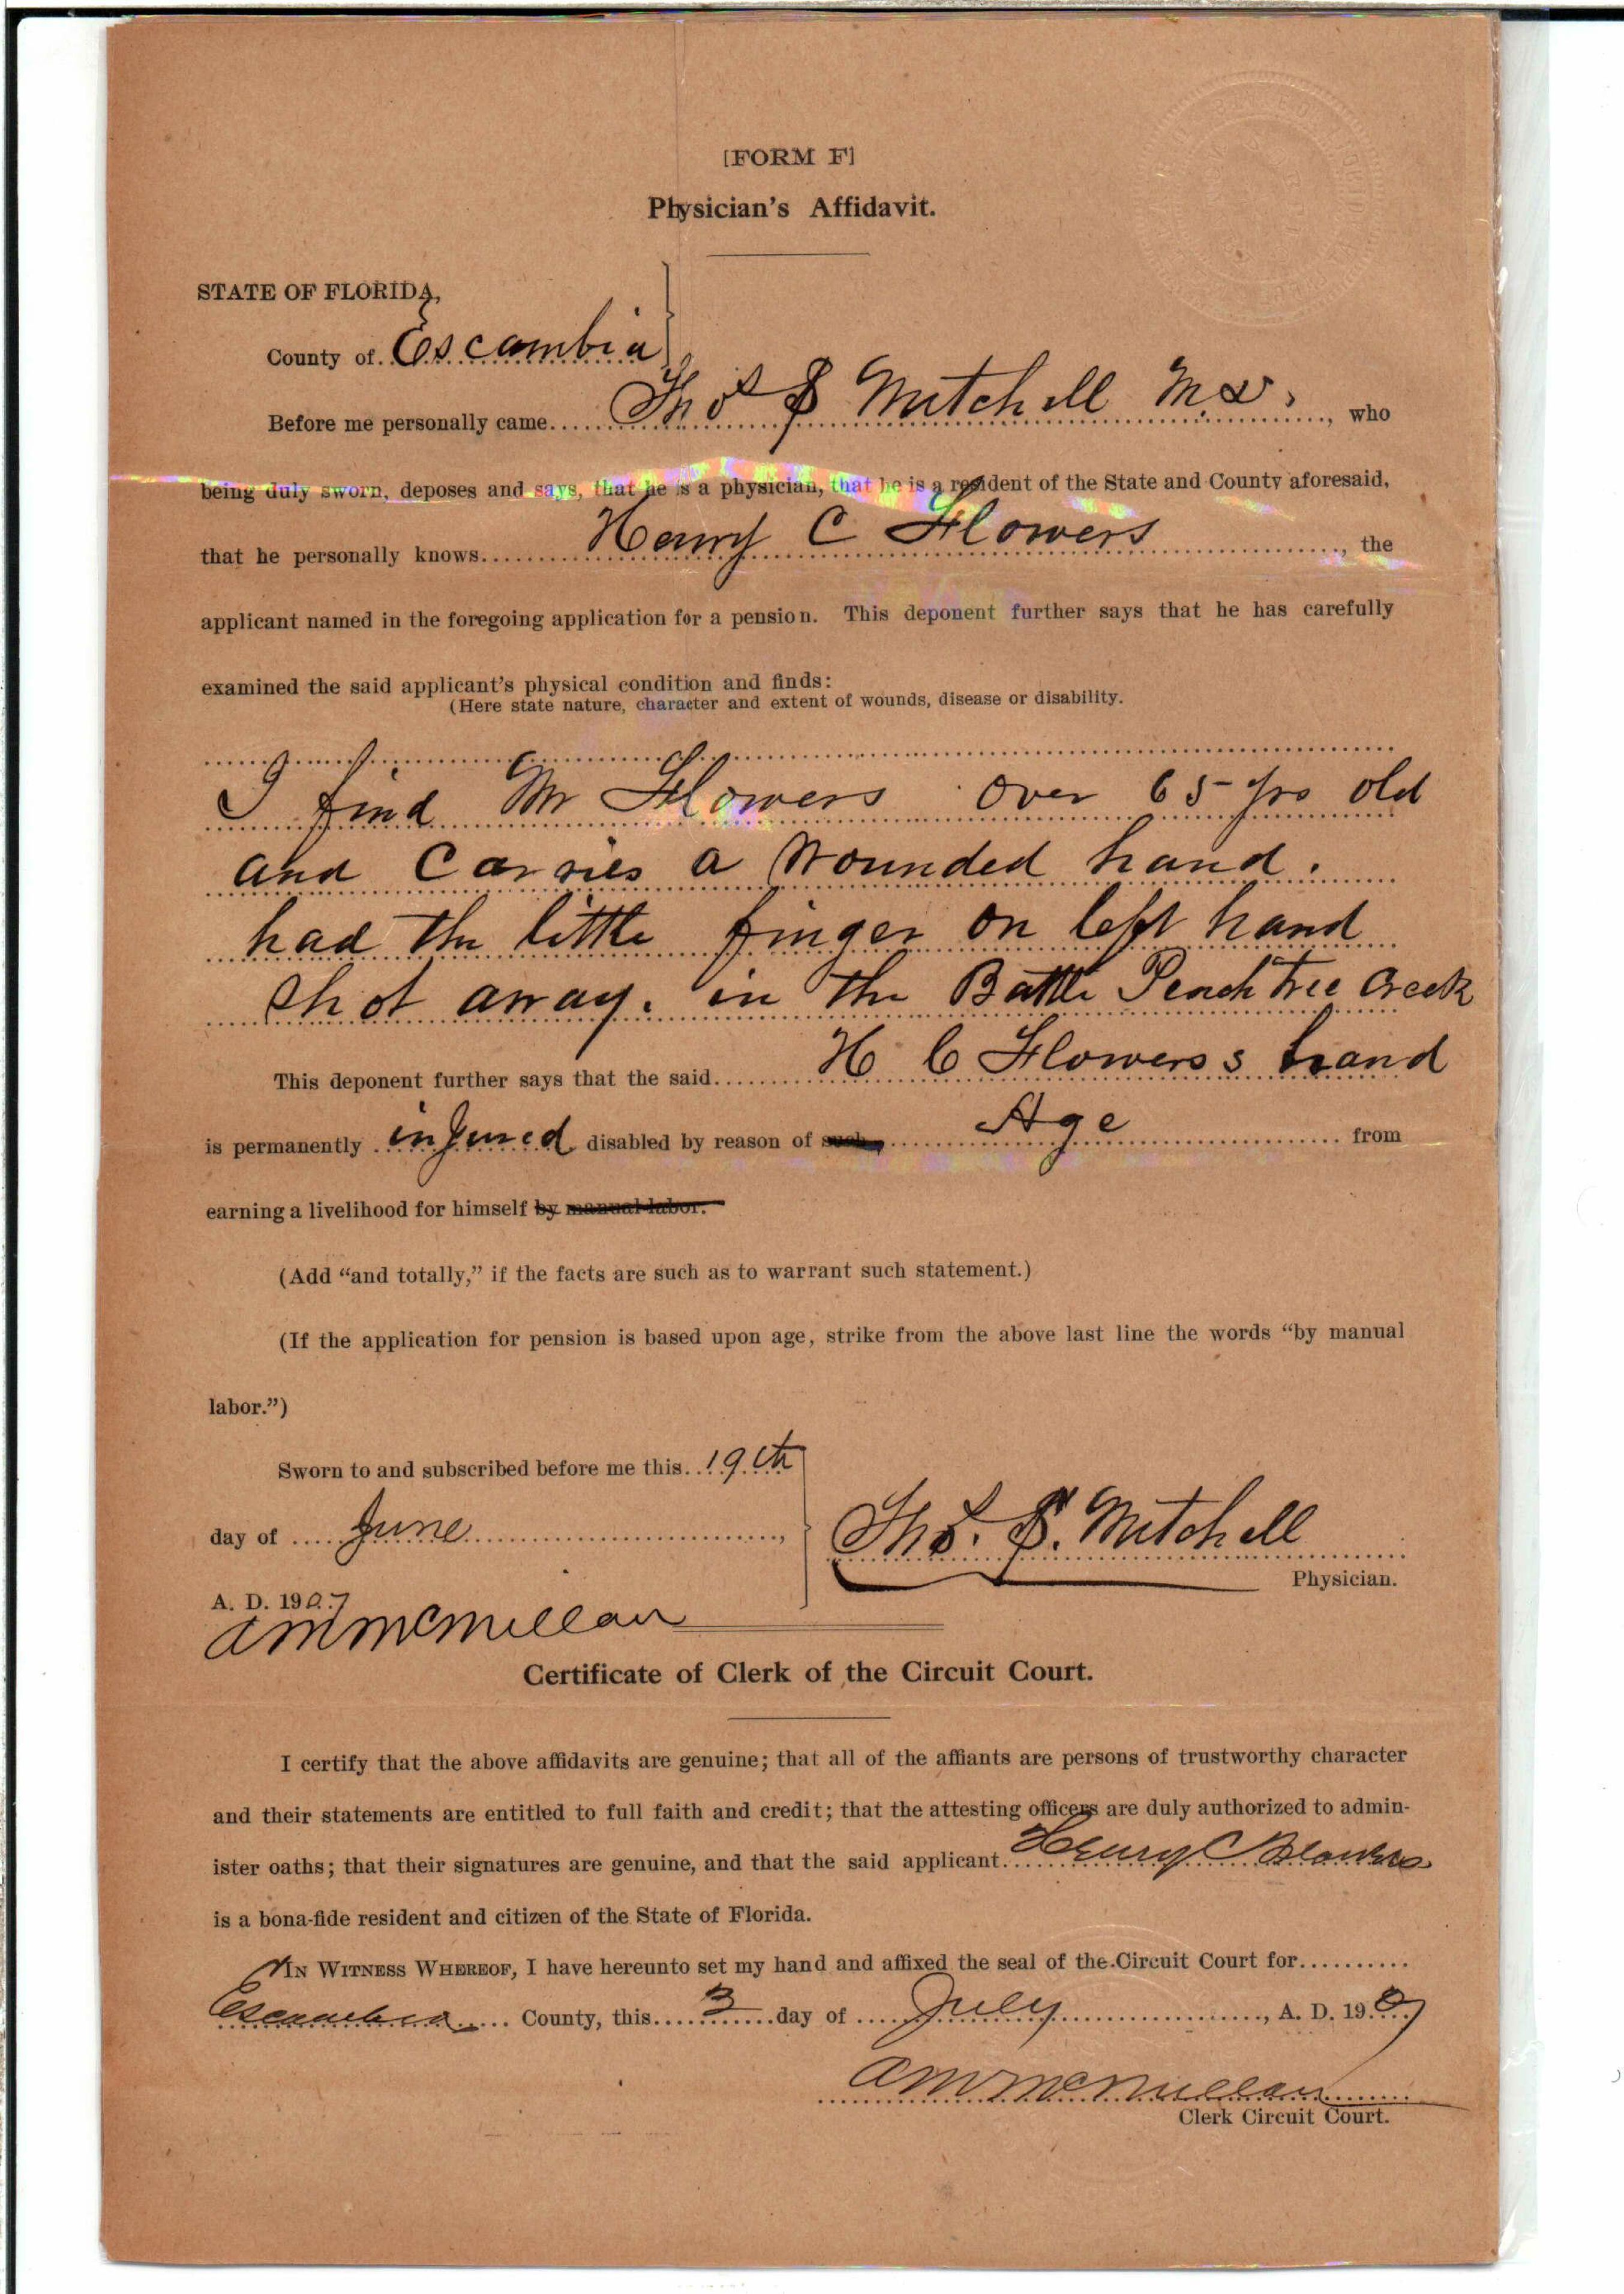 [FORM F]
Physician's Affidavit.
STATE OF FLORIDA,
County of Escambia
Before me personally came Thos S Mitchell M.D., who
being duly sworn, deposes and says, that he is a physician, that he is a resident of the State and County aforesaid,
that he personally knows Henry C Flowers, the
applicant named in the foregoing application for a pension. This deponent further says that he has carefully
examined the said applicant's physical condition and finds:
(Here state nature, character and extent of wounds, disease or disability.
I find Mr Flowers over 65 yrs old
and Carries a Wounded hand.
had the little finger on left hand
Shot away. in the Battle Peach tree Creek
This deponent further says that the said H C Flowers s hand
is permanently injured disabled by reason of such Age from
earning a livelihood for himself by manual labor.
(Add "and totally," if the facts are such as to warrant such statement.)
(If the application for pension is based upon age, strike from the above last line the words "by manual
labor.")
Sworn to and subscribed before me this 19th
day of June,
Thos. S. Mitchell
Physician.
A. D. 1907
A M McMillan
Certificate of Clerk of the Circuit Court.
I certify that the above affidavits are genuine; that all of the affiants are persons of trustworthy character
and their statements are entitled to full faith and credit; that the attesting officers are duly authorized to admin-
ister oaths; that their signatures are genuine, and that the said applicant Henry C Flowers
is a bona-fide resident and citizen of the State of Florida.
IN WITNESS WHEREOF, I have hereunto set my hand and affixed the seal of the Circuit Court for
Escambia County, this 3 day of July, A. D. 1907
A M McMillan
Clerk Circuit Court.